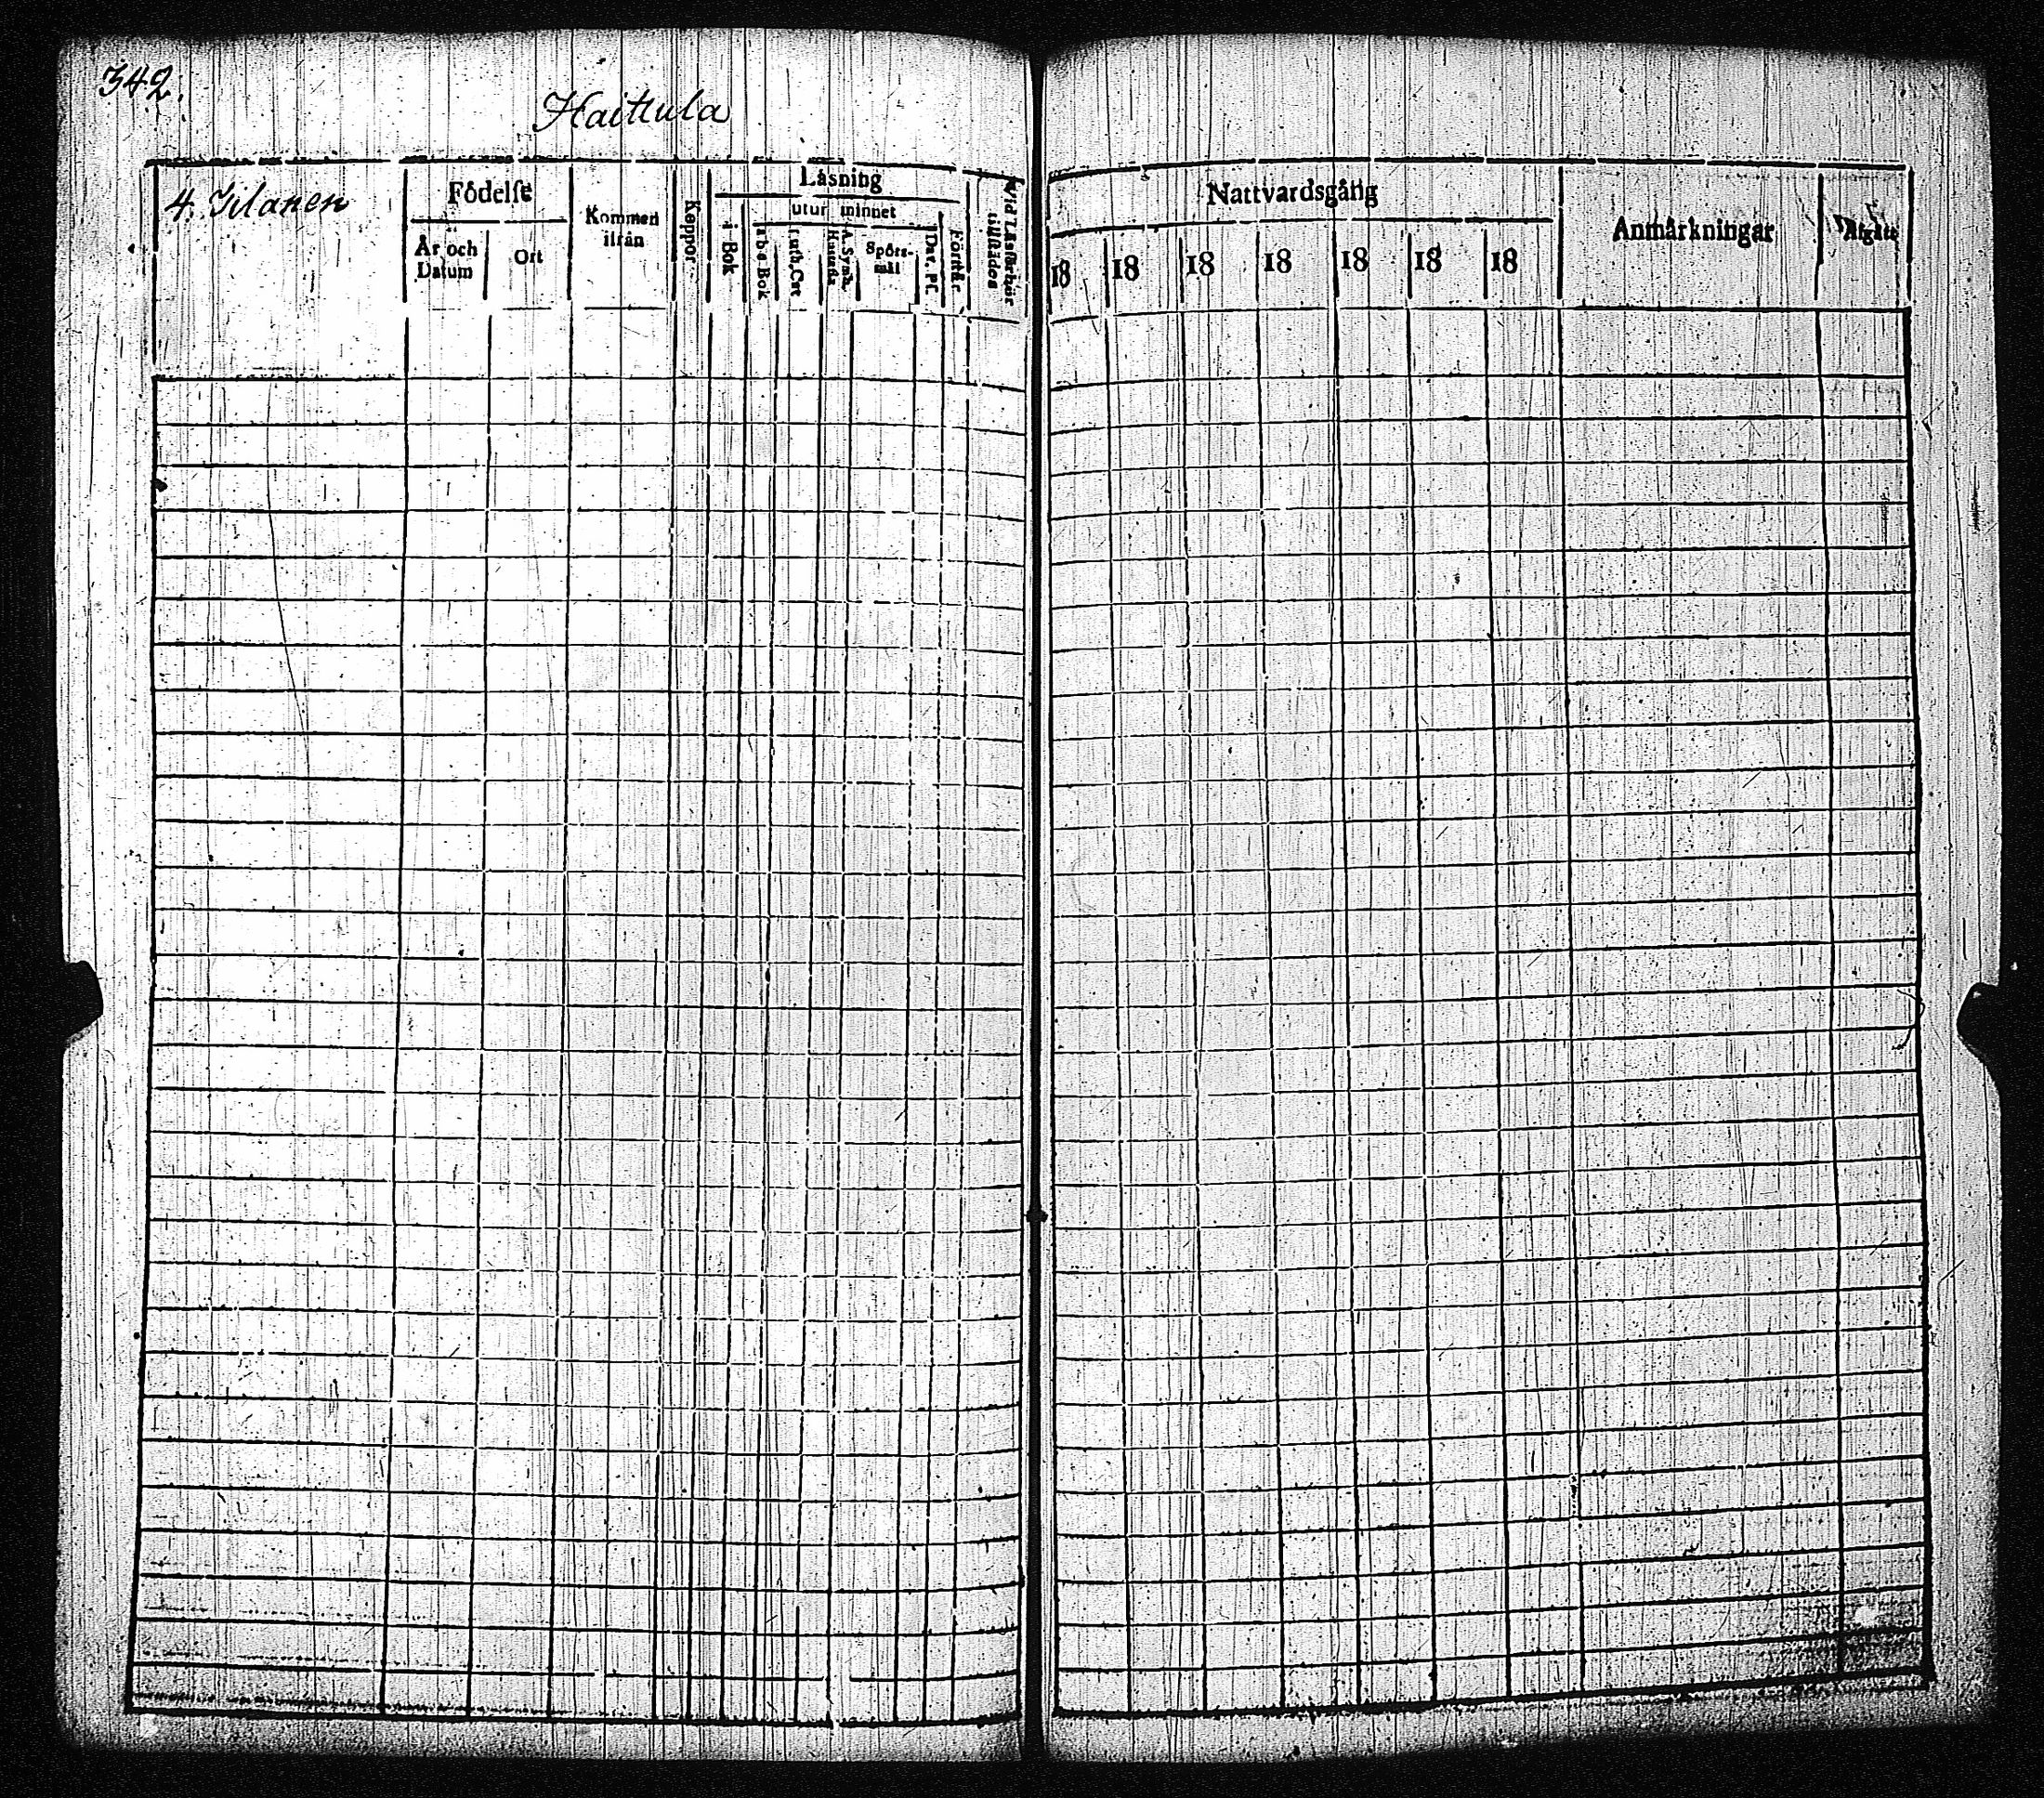 342.
Haittula
4. Iilanen
Födelse
År och Datum
Ort
Kommen ifrån
Koppor
Läsning
i Bok
utur minnet
a b c Bok
Luth. Cat
A. Symb. Hustafl.
Spörs-mål
Dav. Ps.
Förstår
Vid Läsförhör tillstädes
Nattvardsgång
18 18 18 18 18 18 18
Anmärkningar